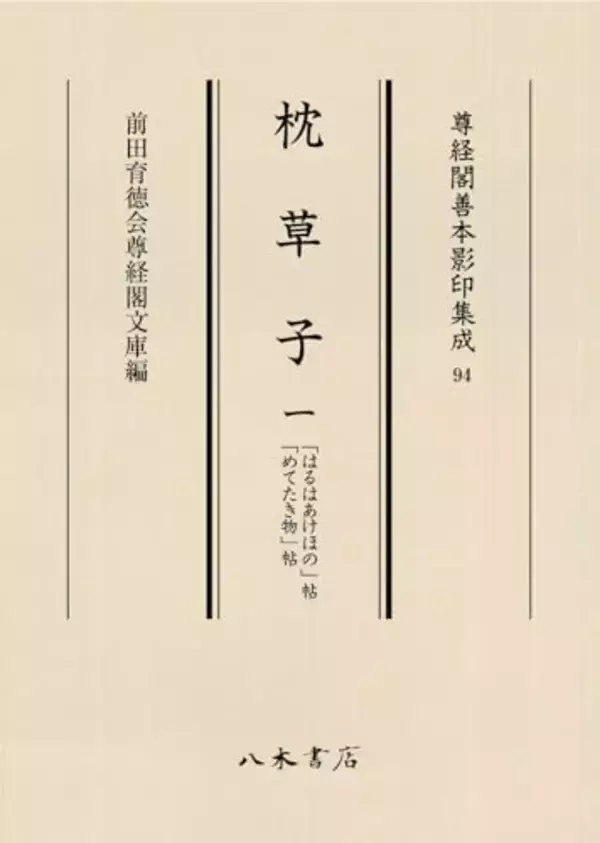 尊経閣善本影印集成 94
枕草子 一
「はるはあけほの」帖
「めてたき物」帖
前田育徳会尊経閣文庫編
八木書店